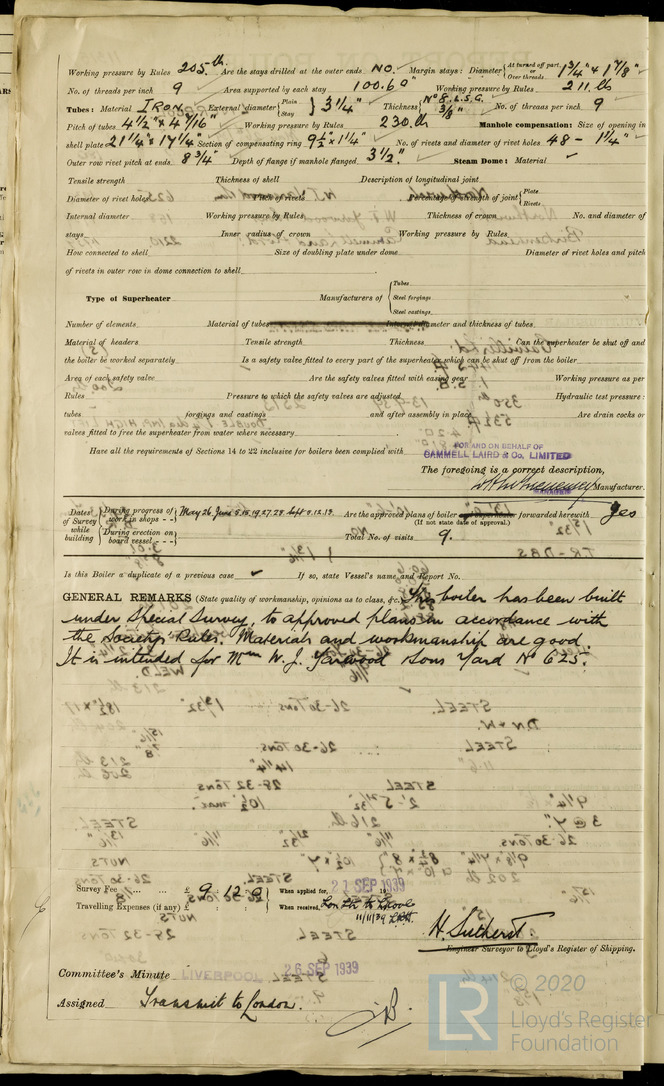 Working pressure by Rules 205 lb Are the stays drilled at the outer ends NO. Margin stays: Diameter { At turned off part, 1 3/4" & 1 7/8" Over threads
No. of threads per inch 9 Area supported by each stay 100.6 □" Working pressure by Rules 211. lb
Tubes: Material IRON External diameter { Plain Stay } 3 1/4" Thickness { No 8. L.S.G. 3/8" No. of threads per inch 9
Pitch of tubes 4 1/2" x 4 7/16" Working pressure by Rules 230. lb Manhole compensation: Size of opening in
shell plate 21 1/4" x 17 1/4" Section of compensating ring 9 1/2" x 1 1/4" No. of rivets and diameter of rivet holes 48 - 1 1/4"
Outer row rivet pitch at ends 8 3/4" Depth of flange if manhole flanged 3 1/2." Steam Dome: Material
Tensile strength Thickness of shell Description of longitudinal joint
Diameter of rivet holes Pitch of rivets Percentage of strength of joint { Plate Rivets
Internal diameter Working pressure by Rules Thickness of crown No. and diameter of
stays Inner radius of crown Working pressure by Rules
How connected to shell Size of doubling plate under dome Diameter of rivet holes and pitch
of rivets in outer row in dome connection to shell
Type of Superheater Manufacturers of { Tubes Steel forgings Steel castings
Number of elements Material of tubes Internal diameter and thickness of tubes
Material of headers Tensile strength Thickness Can the superheater be shut off and
the boiler be worked separately Is a safety valve fitted to every part of the superheater which can be shut off from the boiler
Area of each safety valve Are the safety valves fitted with easing gear Working pressure as per
Rules Pressure to which the safety valves are adjusted Hydraulic test pressure:
tubes forgings and castings and after assembly in place Are drain cocks or
valves fitted to free the superheater from water where necessary
Have all the requirements of Sections 14 to 22 inclusive for boilers been complied with
FOR AND ON BEHALF OF
CAMMELL LAIRD & Co. LIMITED
The foregoing is a correct description,
MANAGER Manufacturer.
Dates of Survey while building { During progress of work in shops - - } May 26 June 5.15.19.27.28 Sept 5.12.13. Are the approved plans of boiler forwarded herewith Yes
(If not state date of approval.)
{ During erection on board vessel - - } Total No. of visits 9.
Is this Boiler a duplicate of a previous case If so, state Vessel's name and Report No.
GENERAL REMARKS (State quality of workmanship, opinions as to class, &c. This boiler has been built
under Special Survey, to approved plans in accordance with
the Society's Rules. Materials and workmanship are good.
It is intended for W. J. Yarwood Sons Yard No 625.
Survey Fee £ 9 : 12 : 0 When applied for, 21 SEP 1939
Travelling Expenses (if any) £ : : When received,
11/11/39
H. Sutherst
Engineer Surveyor to Lloyd's Register of Shipping.
Committee's Minute LIVERPOOL 26 SEP 1939
Assigned Transmit to London.
LR © 2020
Lloyd's Register
Foundation